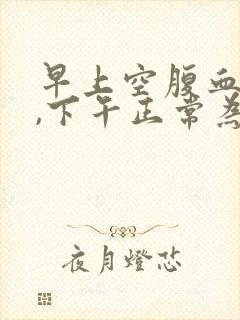 早上空腹血
,下午正常為
夜月燈芯